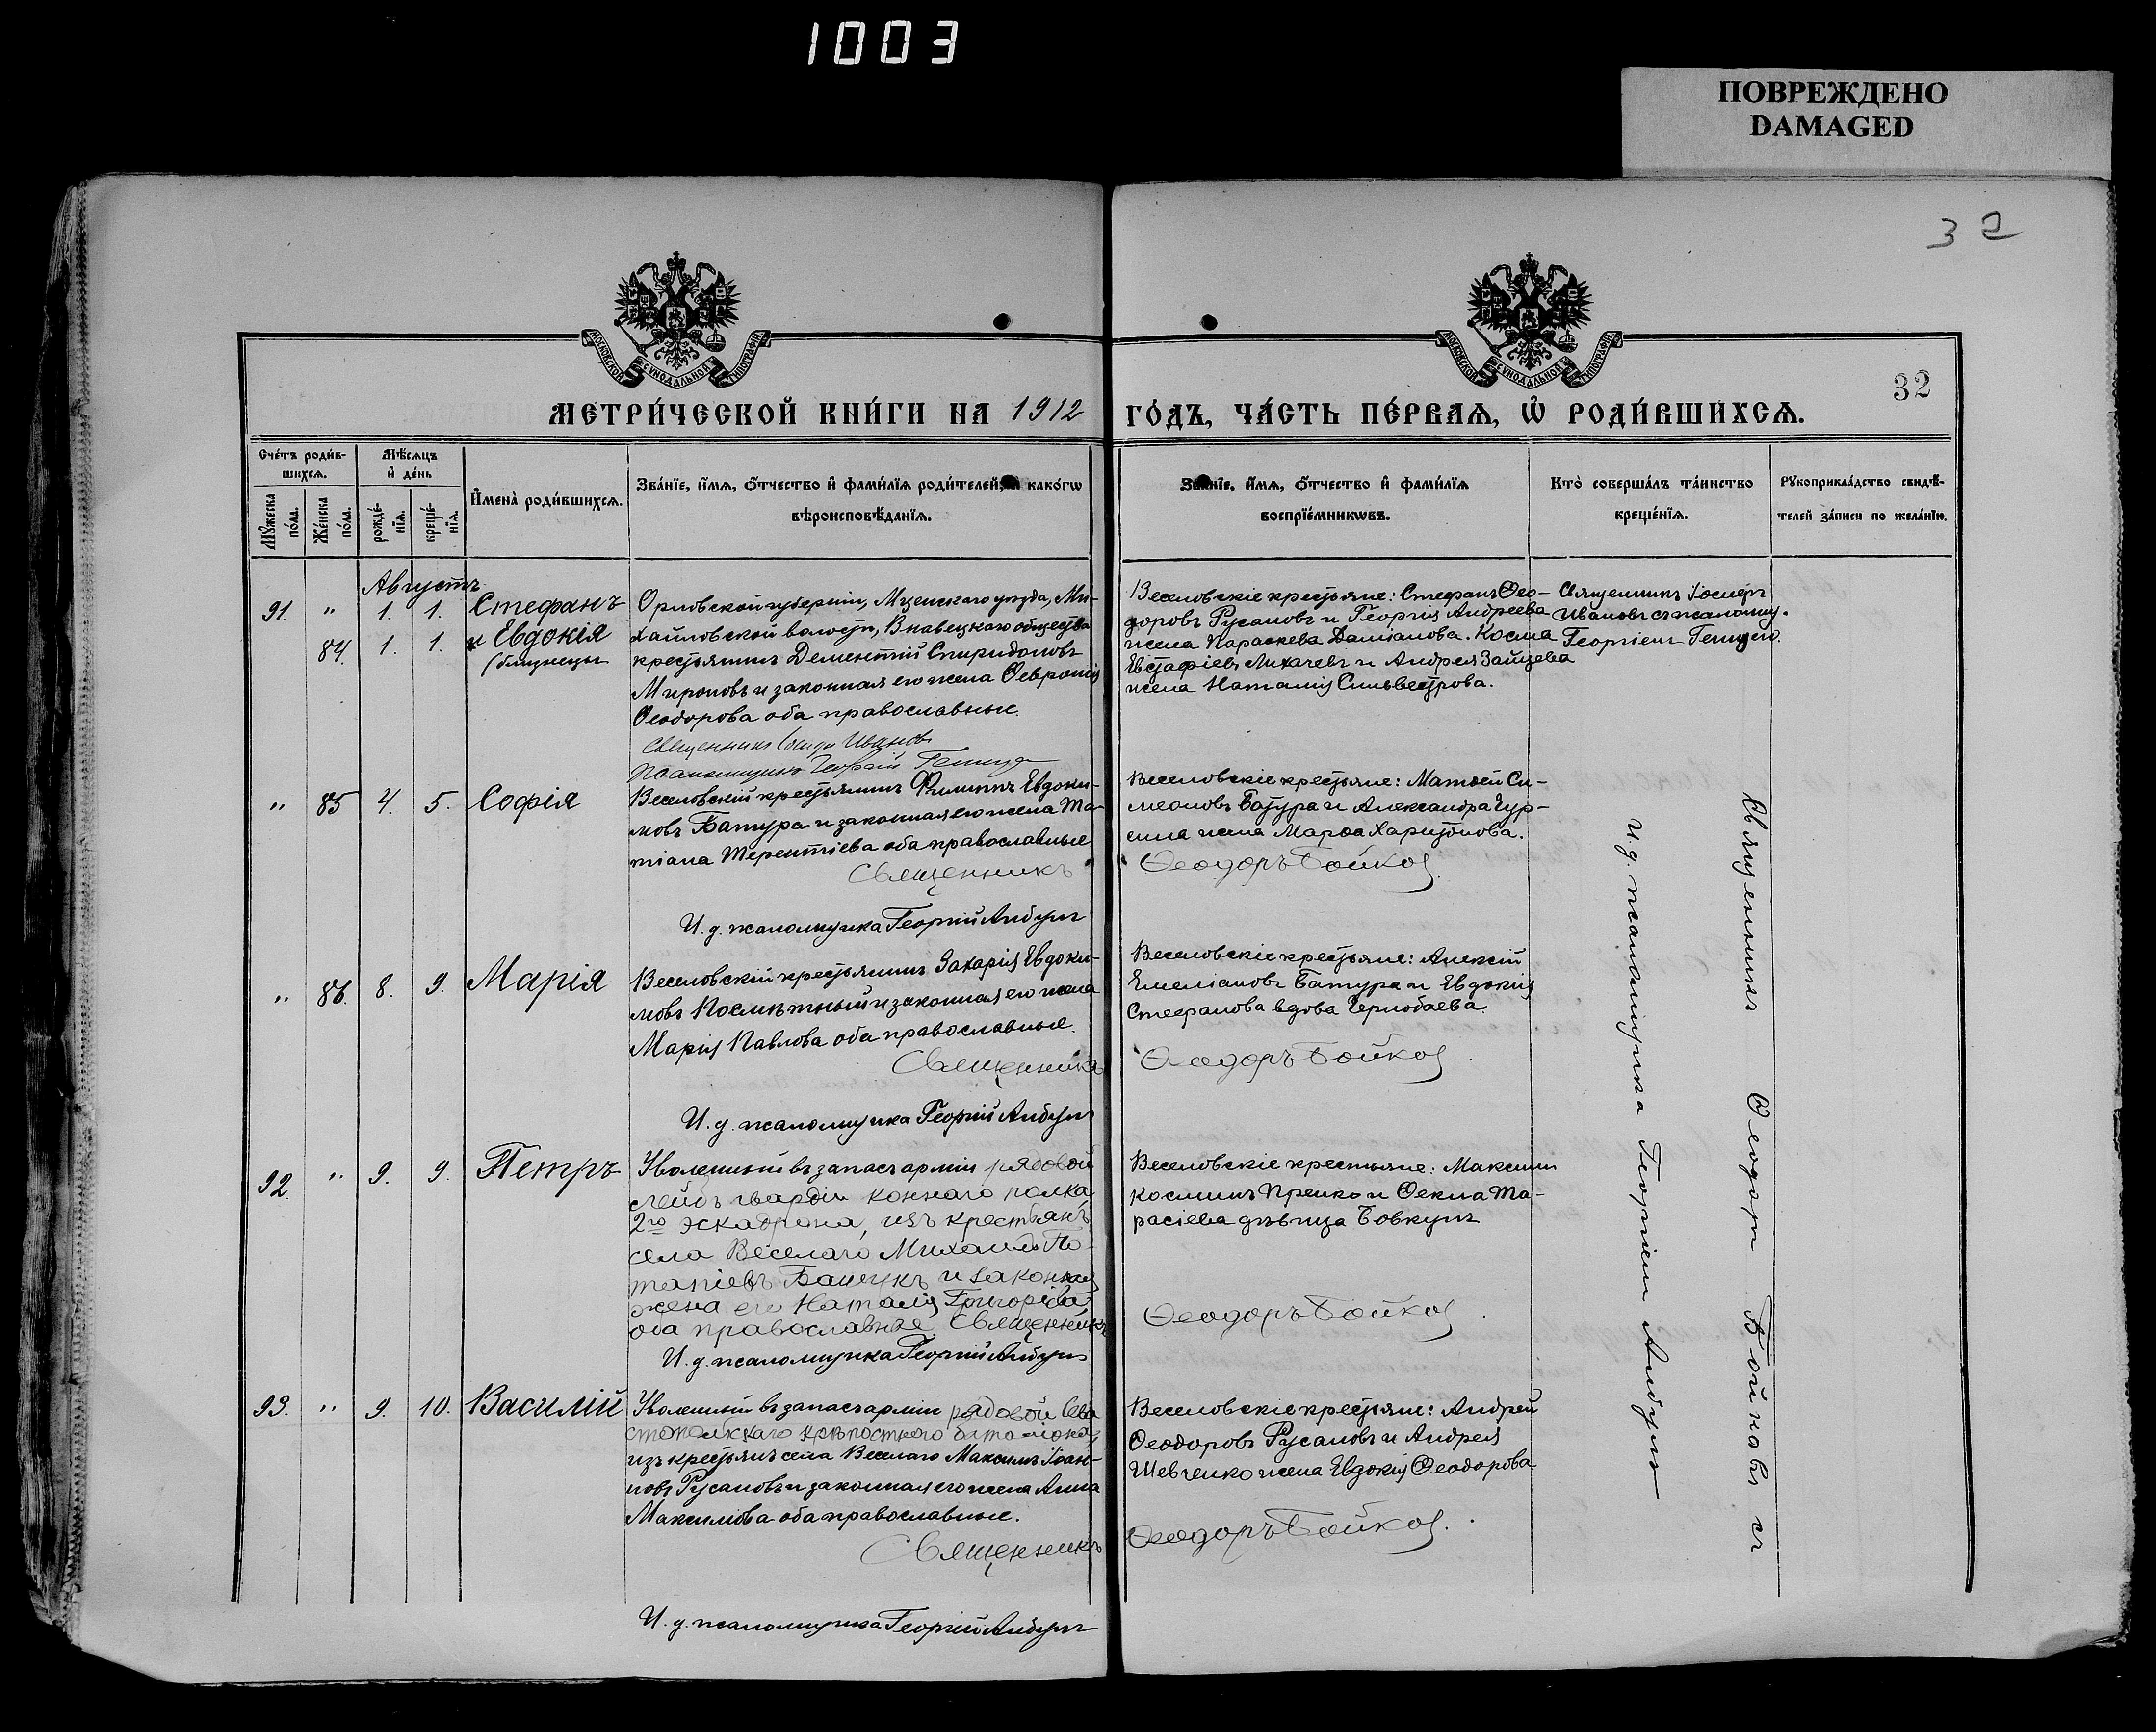 1003
ПОВРЕЖДЕНО
DAMAGED
32
32
МОСКОВСКОЙ СѴНОДАЛЬНОЙ ТИПОГРАФІИ
МОСКОВСКОЙ СѴНОДАЛЬНОЙ ТИПОГРАФІИ
МЕТРИ́ЧЕСКОЙ КНИ́ГИ НА 1912 ГО́ДЪ, ЧА́СТЬ ПЕ́РВАѦ, Ѡ҆ РОДИ́ВШИХСѦ.
Сче́тъ роди́в-
шихсѧ.
Мꙋжеска по́ла.
Же́нска по́ла.
Мѣ́сѧцъ и҆ де́нь
рожде́-нїѧ.
креще́-нїѧ.
И҆мена̀ роди́вшихсѧ.
Зва́нїе, и҆́мѧ, ѻ҆́тчество и҆ фами́лїѧ роди́телей, и҆ како́гѡ
вѣроисповѣ́данїѧ.
Зва́нїе, и҆́мѧ, ѻ҆́тчество и҆ фами́лїѧ
воспрїе́мникѡвъ.
Кто̀ соверша́лъ та́инство
креще́нїѧ.
Рꙋкоприкла́дство свидѣ́-
телей за́писи по жела́нїю.
Августъ
91. " 1. 1. Стефанъ
84. 1. 1. и Евдокія
(близнецы
Орловской губерніи, Мценскаго уѣзда, Ми-
хайловской волости, общества
крестьянинъ Дементій Спиридоновъ
Мироновъ и законная его жена Ѳевронія
Ѳеодорова оба православные.
Священникъ Іосифъ Ивановъ
Псаломщикъ Георгій
Веселовскіе крестьяне: Стефанъ Ѳео-
доровъ Русановъ и Георгія Андреева
жена Параскева Даміанова. Косма
Евстафіевъ Лихачевъ и Андрея Зайцева
жена Наталія Сильвестрова.
Священникъ Іосифъ
Ивановъ съ псаломщ.
Георгіемъ
" 85 4. 5. Софія
Веселовскій крестьянинъ Филиппъ Евдоки-
мовъ Батура и законная его жена Та-
тіана Терентіева оба православные
Священникъ
И. д. псаломщика Георгій Андбулъ
Веселовскіе крестьяне: Матѳей Си-
меоновъ Батура и Александра
жена Марѳа Харитонова.
Ѳеодоръ Бойковъ
" 86. 8. 9. Марія
Веселовскій крестьянинъ Захарія Евдоки-
мовъ и законная его жена
Марія Павлова оба православные.
Священникъ
И. д. псаломщика Георгій Андбулъ
Веселовскіе крестьяне: Алексій
Емеліановъ Батура и Евдокія
Стефанова вдова Чернобаева.
Ѳеодоръ Бойковъ
92. " 9. 9. Петръ
Уволенный въ запасъ арміи рядовой
лейбъ гвардіи коннаго полка
2го эскадрона, изъ крестьянъ
села Веселаго Михаилъ По-
тапіевъ и законная
жена его Наталія Григоріева
оба православные Священникъ
И. д. псаломщика Георгій Андбулъ
Веселовскіе крестьяне: Максимъ
Косминъ и Ѳекла Та-
расіева дѣвица Бовкунъ
Ѳеодоръ Бойковъ
93. " 9. 10. Василій
Уволенный въ запасъ арміи рядовой Сева
стопольскаго крѣпостного баталіона,
изъ крестьянъ села Веселаго Максимъ Іоан-
новъ Русановъ и законная его жена Анна
Максимова оба православные.
Священникъ
И. д. псаломщика Георгій Андбулъ
Веселовскіе крестьяне: Андрей
Ѳеодоровъ Русановъ и Андрея
Шевченко жена Евдокія Ѳеодорова.
Ѳеодоръ Бойковъ
Священникъ Ѳеодоръ Бойковъ съ
и. д. псаломщика Георгіемъ Андбулъ